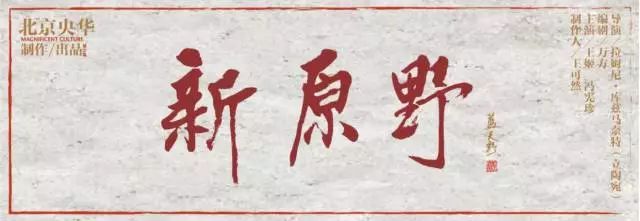 北京央华
MAGNIFICENT CULTURE
制作/出品
新原野
蓝天野
导演 拉姆尼·库兹马奈特(立陶宛)
编剧 万方
主演 王姬 冯宪珍
制作人 王可然